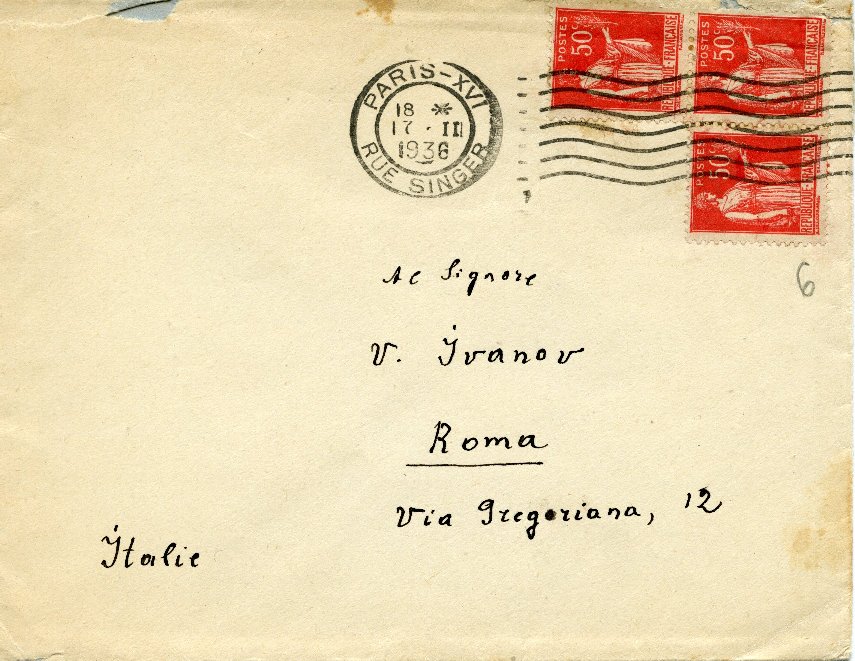 POSTES 50c RÉPUBLIQUE-FRANÇAISE
POSTES 50c RÉPUBLIQUE-FRANÇAISE
POSTES 50c RÉPUBLIQUE-FRANÇAISE
PARIS-XVI
18 *
17 · III
1936
RUE SINGER
6
Al Signore
V. Ivanov
Roma
Via Gregoriana, 12
Italie